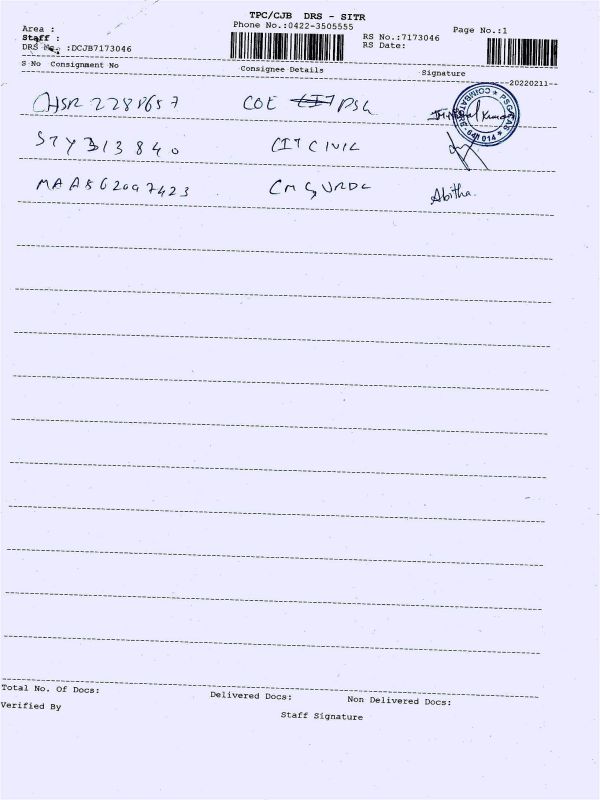 TPC/CJB DRS - SITR
Area :
Phone No.:0422-3505555
Page No.:1
Staff :
RS No.:7173046
DRS No. :DCJB7173046
RS Date:
S No Consignment No Consignee Details Signature
--20220211--
COE PSG
PSGCAS * COIMBATORE - 641 014 *
STY 313840 CIT CIVIL
Abitha.
Total No. Of Docs: Delivered Docs: Non Delivered Docs:
Verified By
Staff Signature